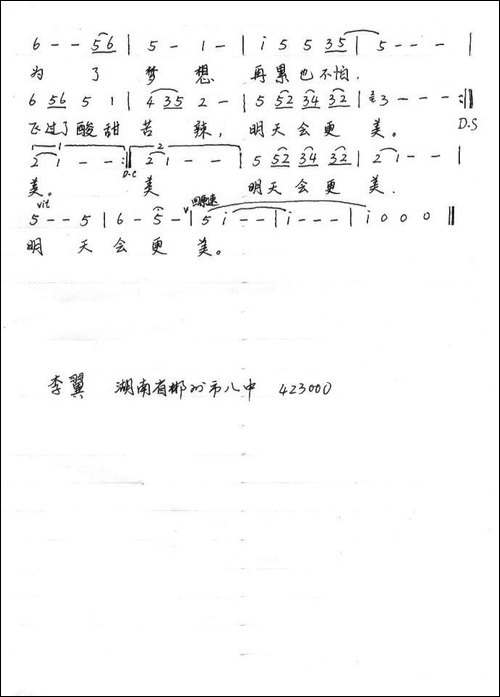 6 - - 56 | 5 - 1 - | i 5 5 35 | 5 - - - |
为 了 梦 想 再累也不怕.
6 56 5 1 | 4 35 2 - | 5 52 34 32 | 3 - - - :||
飞过了酸甜 苦 辣, 明天会更 美。 D.S
1 2
2 1 - - :|| 2 1 - - | 5 52 34 32 | 2 1 - - |
美。 D.C 美 明天会更 美.
vit 回原速
5 - - 5 | 6 - 5 - V | 5 i - - | i - - - | i 0 0 0 ||
明 天 会 更 美。
李翼 湖南省郴州市八中 423000